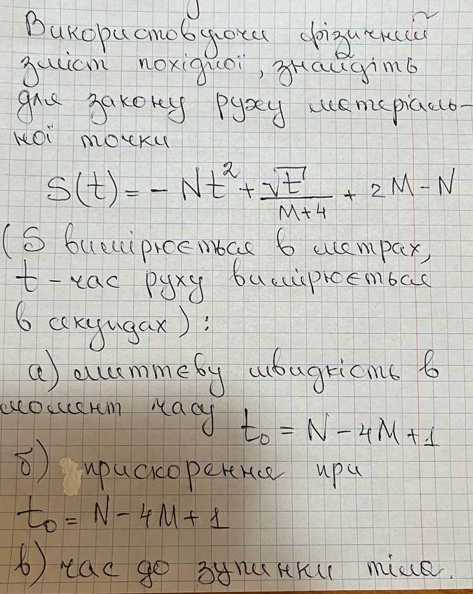 Використовуючи фізичний
зміст похідної, знайдіть
для закону руху матеріаль-
ної точки
S(t) = - Nt² + √t / (M+4) + 2M - N
(S вимірюється в метрах,
t - час руху вимірюється
в секундах):
а) миттєву швидкість в
момент часу t₀ = N - 4M + 1
б) прискорення при
t₀ = N - 4M + 1
в) час до зупинки тіла.